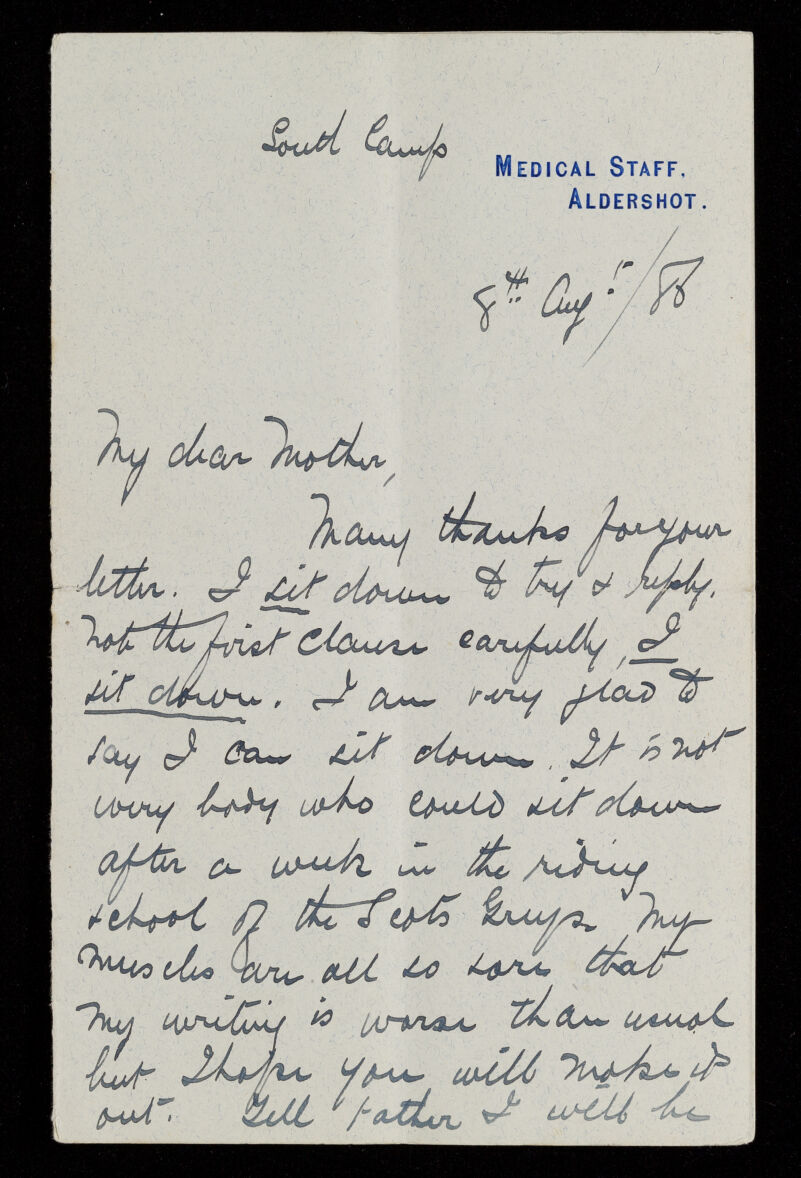 South Camp
MEDICAL STAFF,
ALDERSHOT.
8th Augt/86
My dear Mother,
Many thanks for your
letter. I sit down to try & reply.
Note the first clause carefully, I
sit down. I am very glad to
say I can sit down. It is not
every body who could sit down
after a week in the riding
school of the Scots Greys. My
muscles are all so sore that
my writing is worse than usual
but I hope you will make it
out. Tell Father I will be